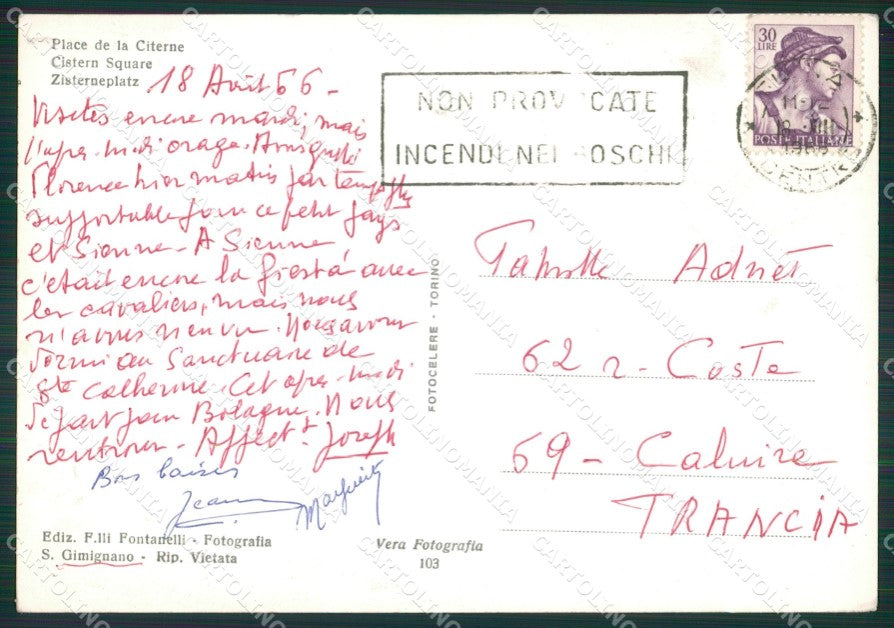 Place de la Citerne
Cistern Square
Zisterneplatz
18 Août 66 -
Visites encore mardi, mais
l'après-midi orage. Ainsi quitté
Florence hier matin par temps plus
supportable pour ce petit pays
et Sienne - A Sienne,
c'était encore la fiesta avec
les cavaliers, mais nous
n'avons rien vu. Nous avons
dormi au Sanctuaire de
Ste Catherine. Cet après-midi
départ pour Bologne. Nous
rentrons - Affectt Joseph
Bons baisers
Jeanne
Marguerite
Ediz. F.lli Fontanelli - Fotografia
S. Gimignano - Rip. Vietata
Vera Fotografia
103
FOTOCELERE - TORINO
NON PROVOCATE
INCENDI NEI BOSCHI
30
LIRE
POSTE ITALIANE
CENTRO
Famille Adnet
62 r - Coste
69 - Caluire
FRANCIA
CARTOLINOMANIA